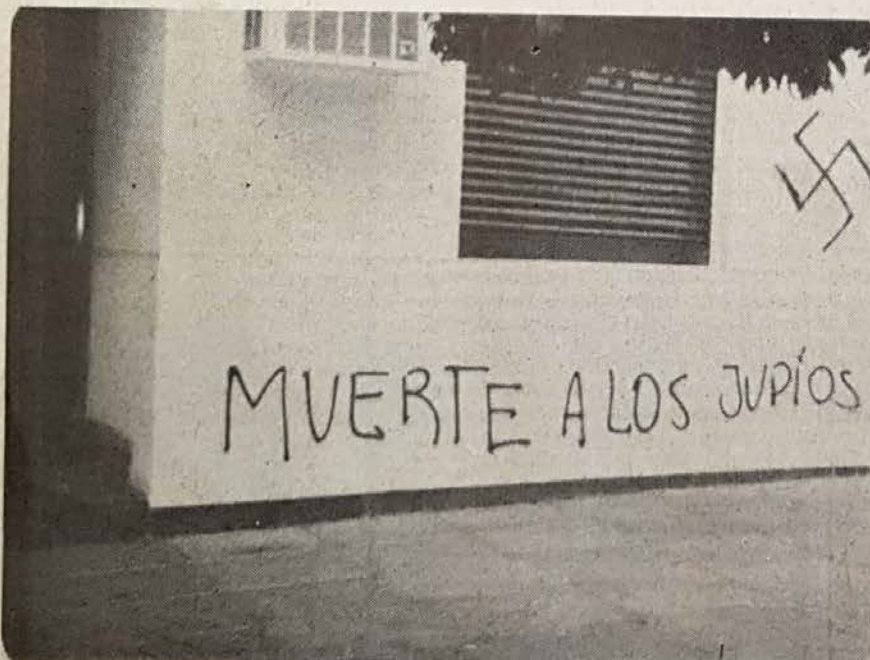 MUERTE A LOS JUPÍOS